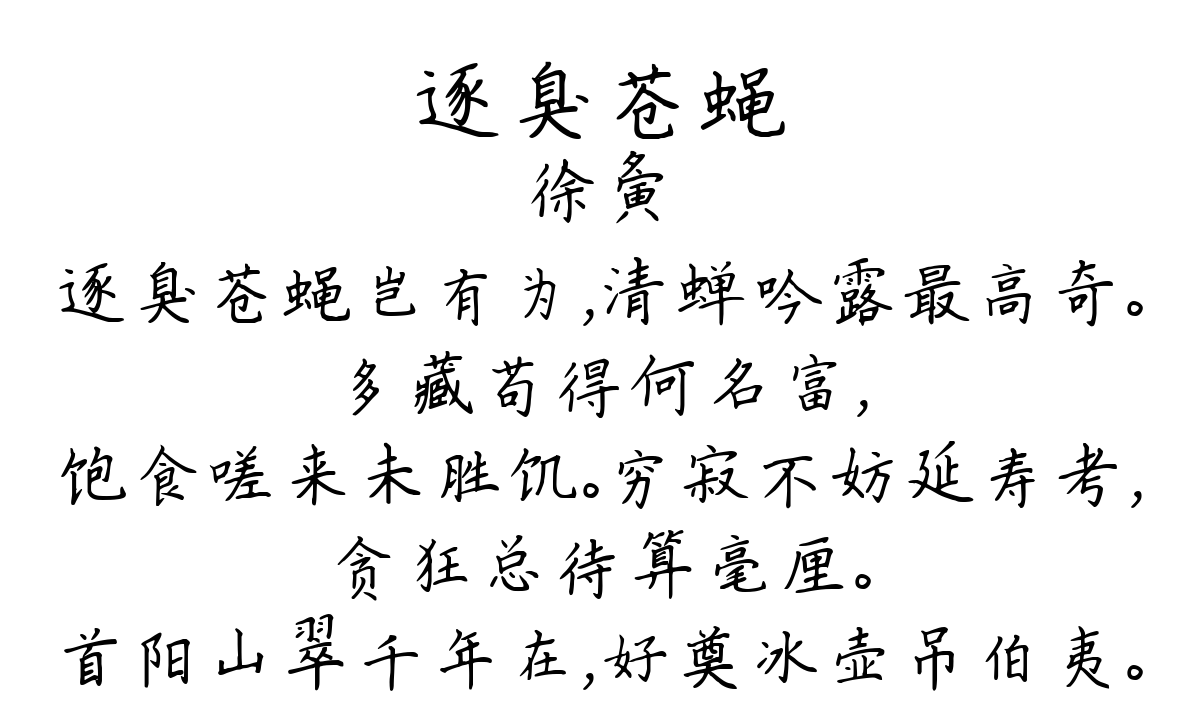 逐臭苍蝇
徐夤
逐臭苍蝇岂有为,清蝉吟露最高奇。
多藏苟得何名富,
饱食嗟来未胜饥。穷寂不妨延寿考,
贪狂总待算毫厘。
首阳山翠千年在,好奠冰壶吊伯夷。